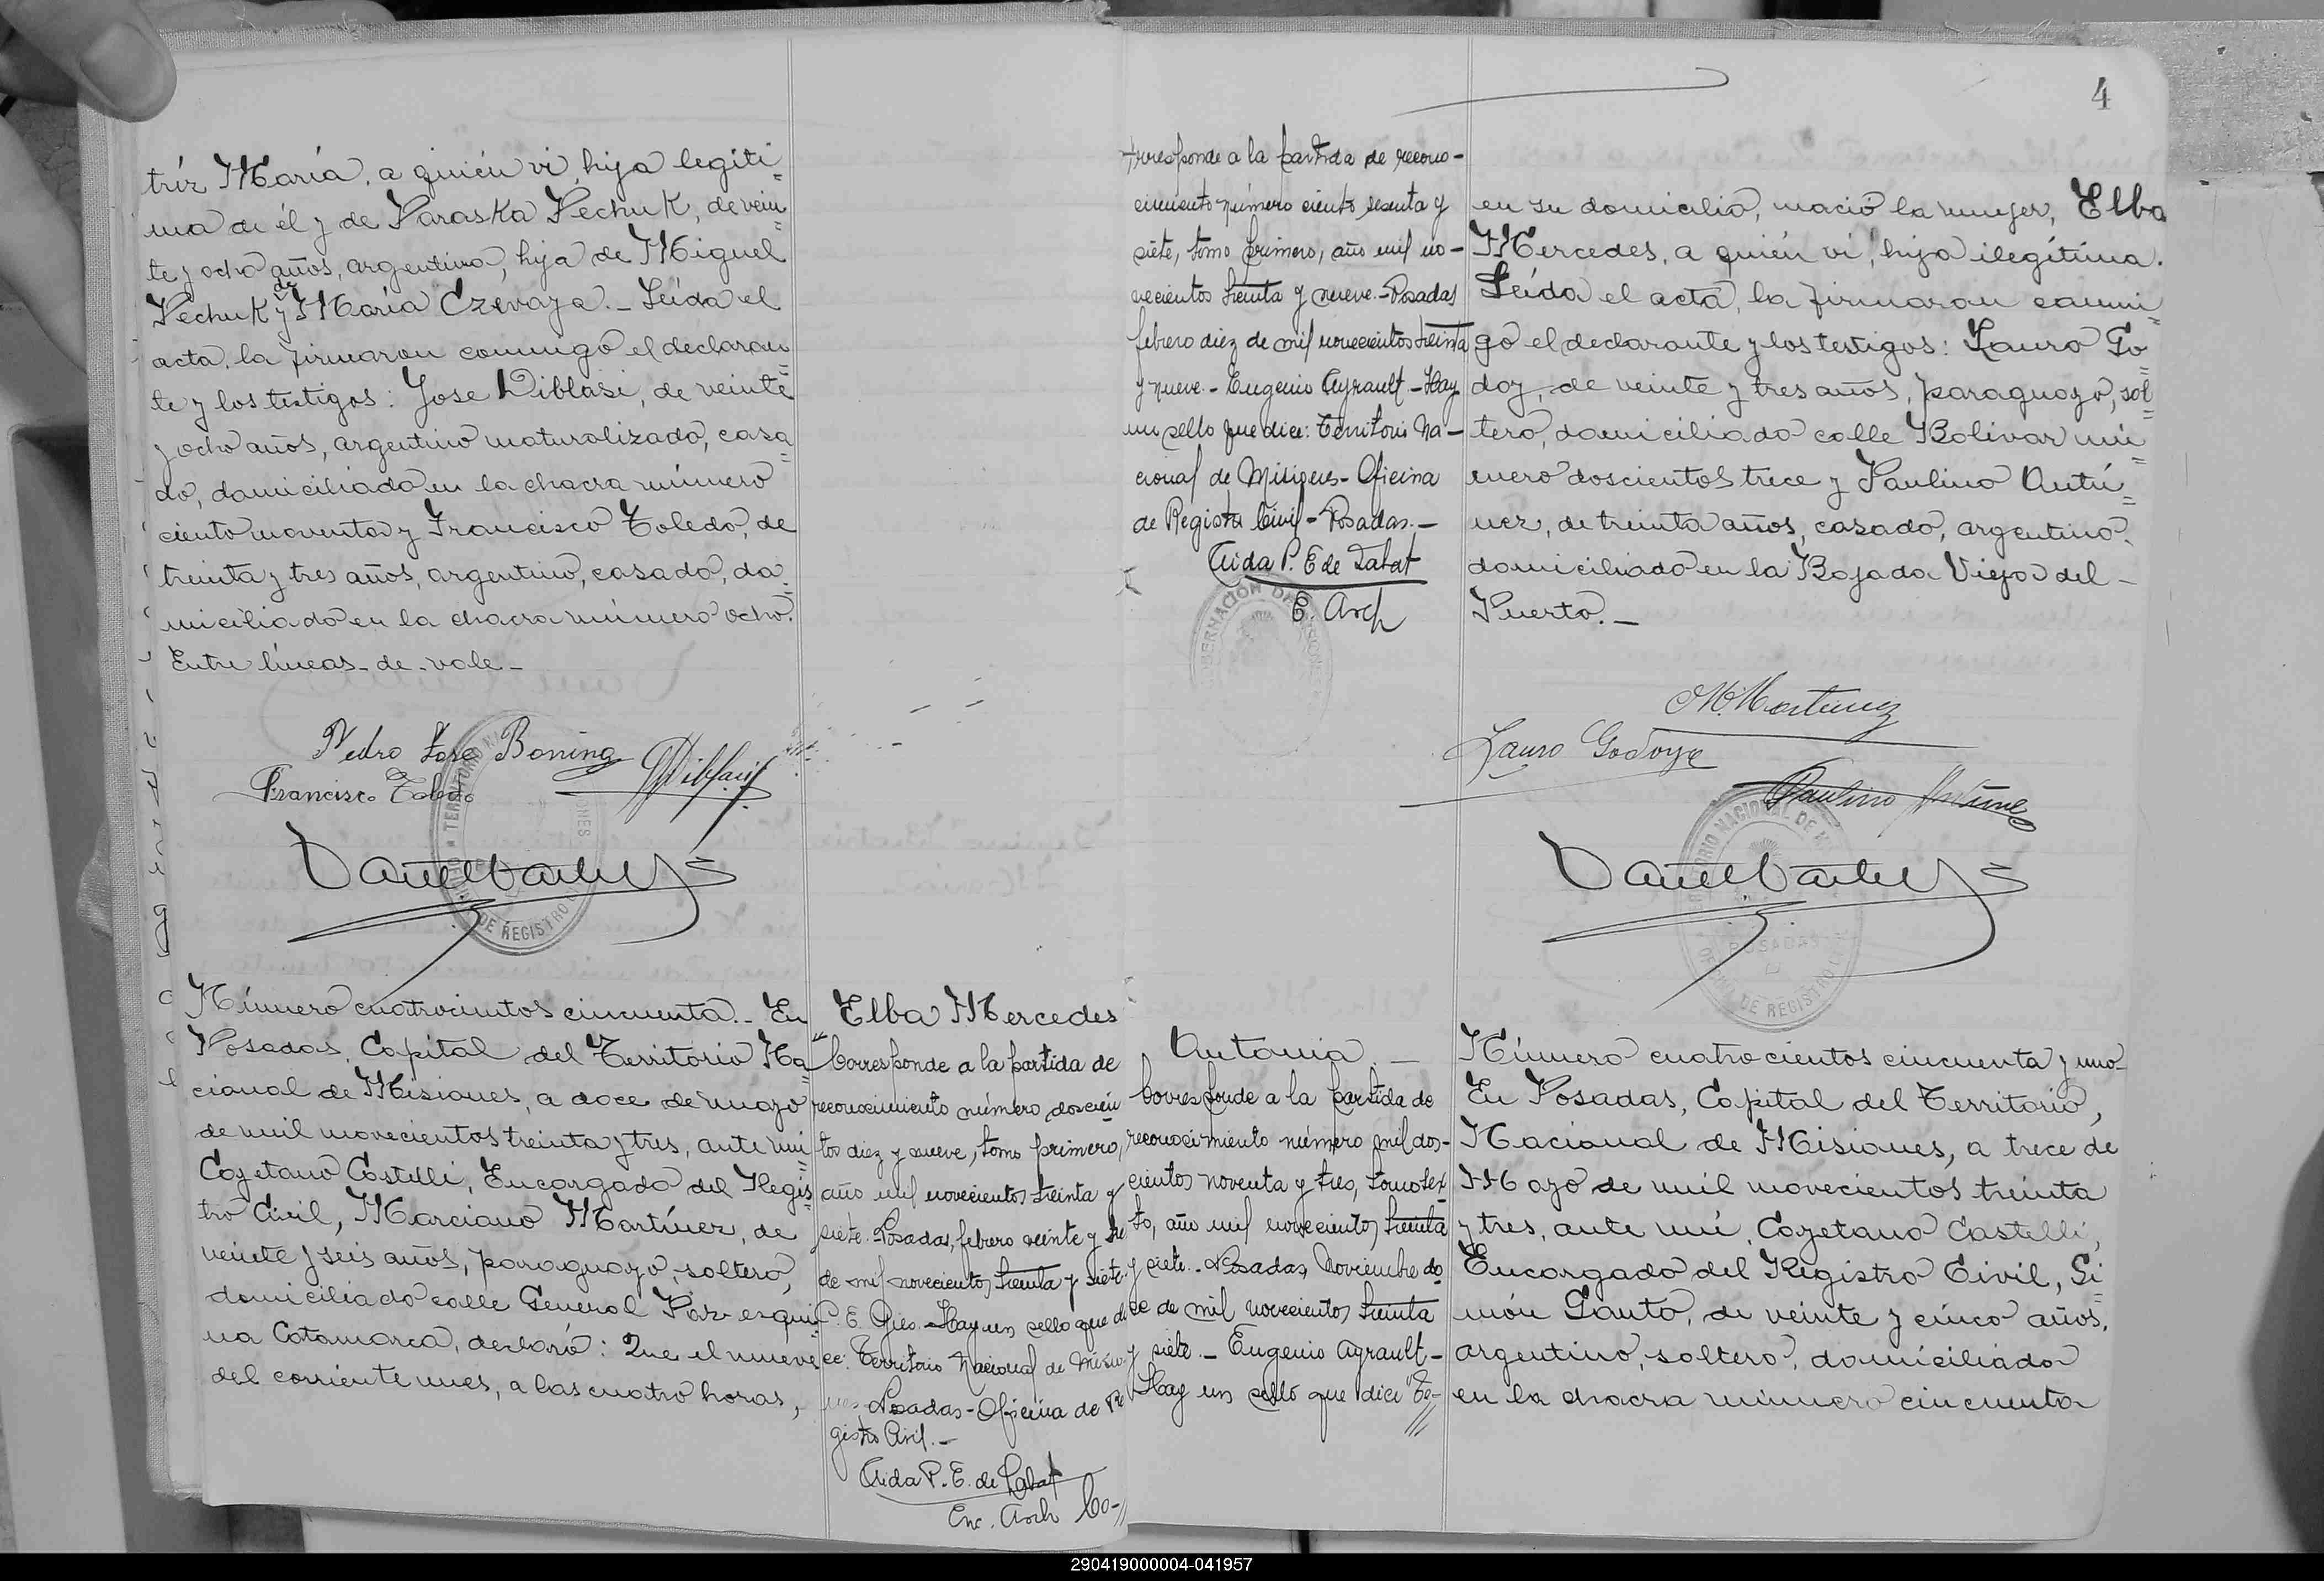 tríz María, a quién vi, hija legíti=
ma de él y de Paraska Pechuk, de vein=
te y ocho años, argentina, hija de Miguel
Pechuk y de María Czevaya.- Leída el
acta, la firmaron conmigo el declaran=
te y los testigos: Jose Diblasi, de veinte
y ocho años, argentino naturalizado, casa=
do, domiciliado en la chacra número
ciento noventa y Francisco Toledo, de
treinta y tres años, argentino, casado, do=
miciliado en la chacra número ocho.
Entre líneas-de-vale-
Pedro Jose Boning
Francisco Toledo
TERRITORIO
DE REGISTRO
Número cuatrocientos cincuenta.- En
Posadas, Capital del Territorio Na=
cional de Misiones, a doce de mayo
de mil novecientos treinta y tres, ante mi=
Cayetano Castelli, Encargado del Regis=
tro Civil, Marciano Martínez, de
veinte y seis años, paraguayo, soltero,
domiciliado calle General Paz esqui=
na Catamarca, declaró: Que el nueve
del corriente mes, a las cuatro horas,
Elba Mercedes
"Corresponde a la partida de
reconocimiento número doscien
tos diez y nueve, tomo primero,
año mil novecientos treinta y
siete. Posadas, febrero veinte y
de mil novecientos treinta y siete.
Hay un sello que di
ce: Territorio Nacional de Misio
nes-Posadas-Oficina de Re
gistro Civil.-
Aida P. E. de Labat
Enc. Arch Co-//
4
rresponde a la partida de recono-
cimiento número ciento sesenta y
siete, tomo primero, año mil no-
vecientos treinta y nueve.-Posadas
febrero diez de mil novecientos treinta
y nueve.- Eugenio Ayrault-Hay
un sello que dice: Territorio Na-
cional de Misiones-Oficina
de Registro Civil-Posadas.-
Aida P. E de Labat
E. Arch
en su domicilio, nació la mujer, Elba
Mercedes, a quién vi, hija ilegítima.
Leída el acta, la firmaron conmi=
go el declarante y los testigos: Lauro Go=
doy, de veinte y tres años, paraguayo, sol=
tero, domiciliado calle Bolívar nú=
mero doscientos trece y Paulino Antú=
nez, de treinta años, casado, argentino,
domiciliado en la Bajada Vieja del-
Puerto.-
M. Martinez
Lauro Godoy
Paulino Antunez
POSADAS
DE REGISTRO
Antonia.-
Corresponde a la partida de
reconocimiento número mil dos-
cientos noventa y tres, tomo sex
to, año mil novecientos treinta
y siete.- Posadas, Noviembre do
ce de mil novecientos treinta
y siete.- Eugenio Ayrault-
Hay un sello que dice "Te-//
Número cuatrocientos cincuenta y uno-
En Posadas, Capital del Territorio,
Nacional de Misiones, a trece de
Mayo de mil novecientos treinta
y tres, ante mi, Cayetano Castelli,
Encargado del Registro Civil, Si=
món Gauto, de veinte y cinco años,
argentino, soltero, domiciliado
en la chacra número cincuenta
290419000004-041957